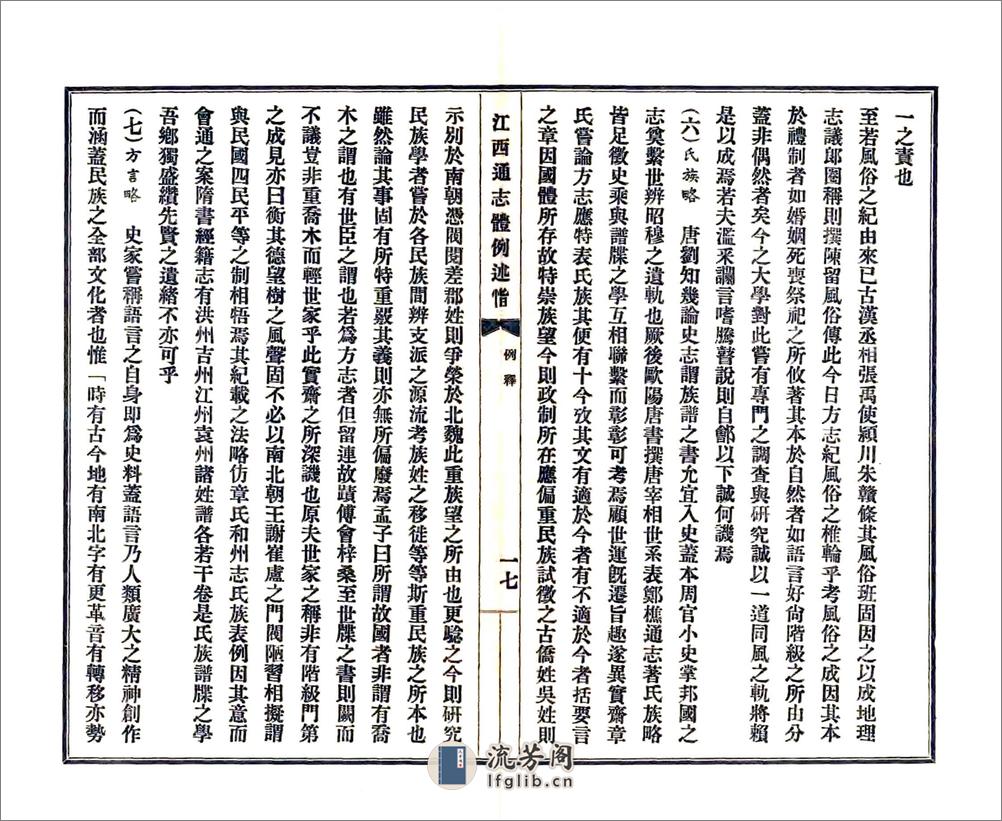 一之責也
至若風俗之紀由來已古漢丞相張禹使潁川朱贛條其風俗班固因之以成地理
志議郎圈稱則撰陳留風俗傳此今日方志紀風俗之椎輪乎考風俗之成因其本
於禮制者如婚姻死喪祭祀之所攸著其本於自然者如語言好尚階級之所由分
蓋非偶然者矣今之大學對此嘗有專門之調查與研究誠以一道同風之軌將賴
是以成焉若夫濫采讕言嗜騰瞽說則自鄶以下誠何譏焉
(六)氏族略 唐劉知幾論史志謂族譜之書允宜入史蓋本周官小史掌邦國之
志奠繫世辨昭穆之遺軌也厥後歐陽唐書撰唐宰相世系表鄭樵通志著氏族略
皆足徵史乘與譜牒之學互相聯繫而彰彰可考焉顧世運既遷旨趣遂異實齋章
氏嘗論方志應特表氏族其便有十今攷其文有適於今者有不適於今者括要言
之章因國體所存故特崇族望今則政制所在應偏重民族試徵之古僑姓吳姓則
江西通志體例述恉
例釋
一七
示別於南朝憑閥閱差郡姓則爭榮於北魏此重族望之所由也更騐之今則研究
民族學者嘗於各民族間辨支派之源流考族姓之移徙等等斯重民族之所本也
雖然論其事固有所特重覈其義則亦無所偏廢焉孟子曰所謂故國者非謂有喬
木之謂也有世臣之謂也若為方志者但留連故蹟傅會梓桑至世牒之書則闕而
不議豈非重喬木而輕世家乎此實齋之所深譏也原夫世家之稱非有階級門第
之成見亦曰衡其德望樹之風聲固不必以南北朝王謝崔盧之門閥陋習相擬謂
與民國四民平等之制相牾焉其紀載之法略仿章氏和州志氏族表例因其意而
會通之案隋書經籍志有洪州吉州江州袁州諸姓譜各若干卷是氏族譜牒之學
吾鄉獨盛纘先賢之遺緒不亦可乎
(七)方言略 史家嘗稱語言之自身即為史料蓋語言乃人類廣大之精神創作
而涵蓋民族之全部文化者也惟「時有古今地有南北字有更革音有轉移亦勢
流芳阁
lfglib.cn